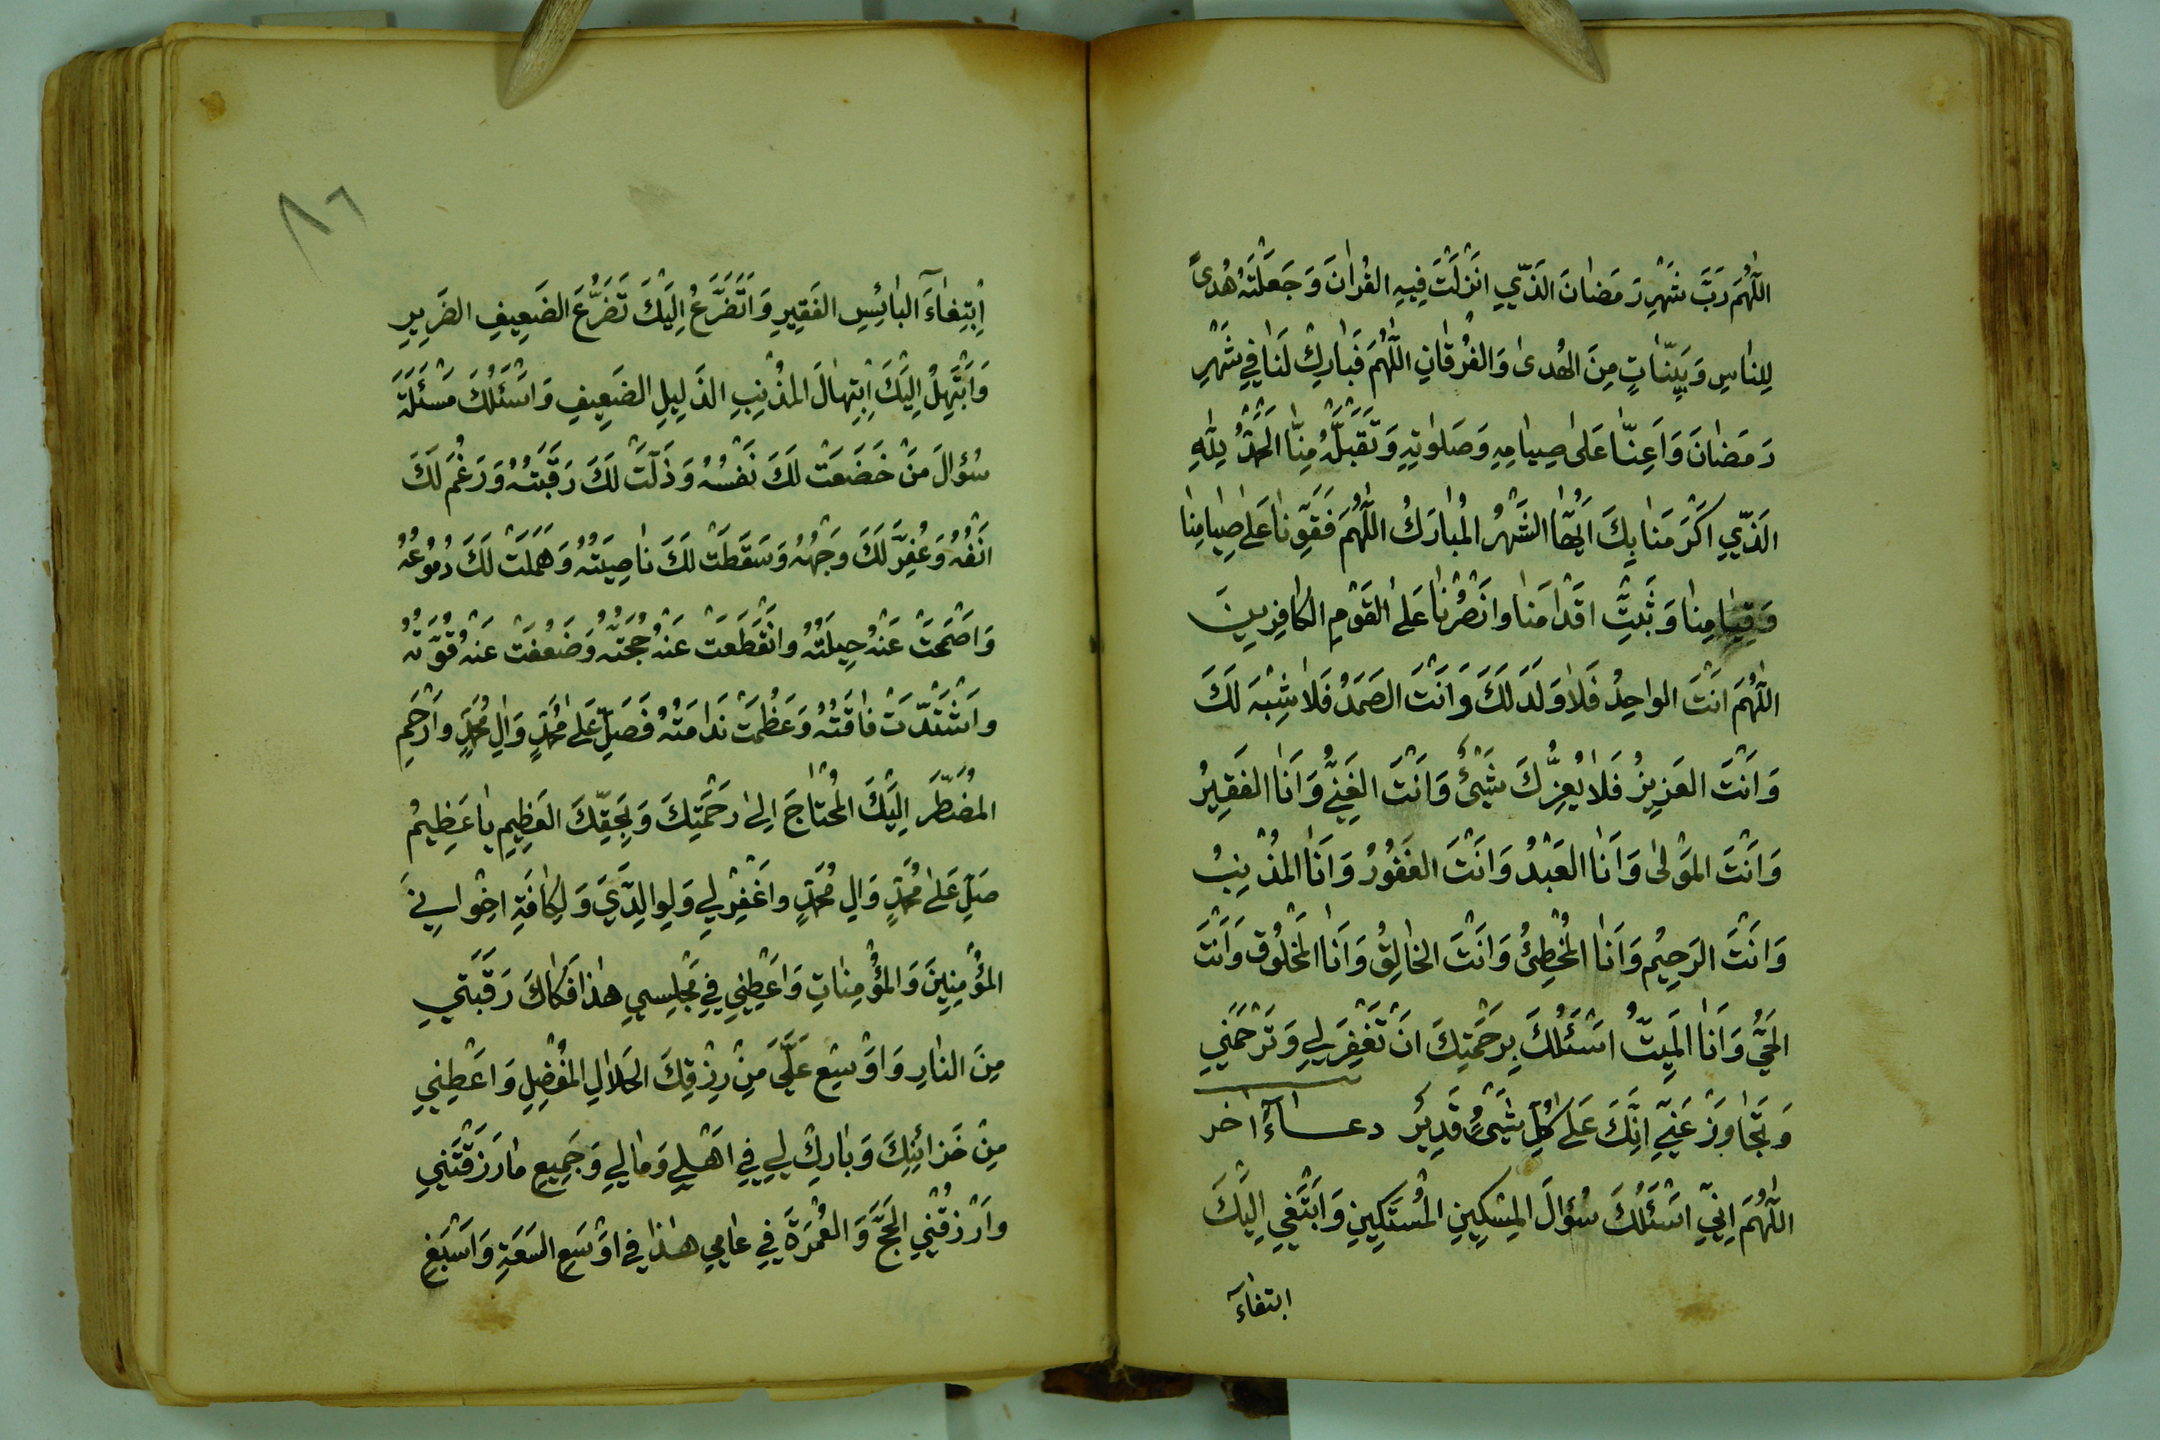 اَللّٰهُمَّ رَبَّ شَهْرِ رَمَضٰانَ الَّذِّي اَنْزَلْتَ فِيهِ القُرْاٰنَ وَ جَعَلْتَهُ هُدىً
لِلنٰاسِ وَ بَيِّنٰاتٍ مِنَ الهُدىٰ وَ الفُرْقٰانِ اَللّٰهُمَّ فَبٰارِكْ لَنٰا فِي شَهْرِ
رَمَضٰانَ وَ اَعِنّٰا عَلىٰ صِيٰامِهِ وَ صَلَوٰاتِهِ وَ تَقَبَّلْهُ مِنّٰا اَلْحَمْدُ لِلّٰهِ
الَّذِّي اَكْرَمَنٰا بِكَ اَيُّهَا الشَّهْرُ الْمُبٰارَكُ اَللّٰهُمَّ فَقَوِّنٰا عَلىٰ صِيٰامِنٰا
وَ قِيٰامِنٰا وَ ثَبِّتْ اَقْدٰامَنٰا وَانْصُرْنٰا عَلىَ القَوْمِ الكٰافِرِينَ
اَللّٰهُمَّ اَنْتَ الوٰاحِدُ فَلاٰ وَلَدَ لَكَ وَ اَنْتَ الصَمَدُ فَلاٰ شِبْهَ لَكَ
وَ اَنْتَ العَزِيزُ فَلاٰ يُعِزُّكَ شَيْئٌ وَ اَنْتَ الغَنِيُّ وَ اَنَا الفَقِيرُ
وَ اَنْتَ المَوْلىٰ وَ اَنَا العَبْدُ وَ اَنْتَ الغَفُورُ وَ اَنَا المُذْنِبُ
وَ اَنْتَ الرَحِيمُ وَ اَنَا المُخْطِئُ وَ اَنْتَ الخٰالِقُ وَ اَنَا المَخْلُوقُ وَ اَنْتَ
الحَيُّ وَ اَنَا المَيِّتُ اَسْئَلُكَ بِرَحْمَتِكَ اَنْ تَغْفِرَ لِي وَ تَرْحَمَنِي
وَ تَجٰاوَزْ عَنِّي اِنَّكَ عَلىٰ كُلِّ شَيْءٍ قَدِيرٌ دعــاءٌ اخر
اَللّٰهُمَّ اِنِّي اَسْئَلُكَ سُؤٰالَ المِسْكِينِ المُسْتَكِينِ وَ اَبْتَغِي اِلَيْكَ
ابتغاء
٨٦
اِبْتِغٰاءَ البٰائِسِ الفَقِيرِ وَ اَتَضَرَّعُ اِلَيْكَ تَضَرُّعَ الضَعِيفِ الضَرِيرِ
وَ اَبْتَهِلُ اِلَيْكَ اِبْتِهٰالَ المُذْنِبِ الذَلِيلِ الضَعِيفِ وَ اَسْئَلُكَ مَسْئَلَةَ
سُؤٰالَ مَنْ خَضَعَتْ لَكَ نَفْسُهُ وَ ذَلَّتْ لَكَ رَقَبَتُهُ وَ رَغِمَ لَكَ
اَنْفُهُ وَ عُفِّرَ لَكَ وَجْهُهُ وَ سَقَطَتْ لَكَ نٰاصِيَتُهُ وَ هَمَلَتْ لَكَ دُمُوعُهُ
وَ اضْمَحَتْ عَنْهُ حِيلَتُهُ وانْقَطَعَتْ عَنْهُ حُجَّتُهُ وَ ضَعُفَتْ عَنْهُ قُوَّتُهُ
واشْتَدَّتْ فٰاقَتُهُ وَ عَظُمَتْ نَدٰامَتُهُ فَصَلِّ عَلىٰ مُحَمَّدٍ وَ اٰلِ مُحَمَّدٍ وارْحَمِ
المُضْطَّرَ اِلَيْكَ المُحْتٰاجَ اِلىٰ رَحْمَتِكَ وَ بِحَقِّكَ العَظِيمِ يٰا عَظِيمُ
صَلِّ عَلىٰ مُحَمَّدٍ وَ اٰلِ مُحَمَّدٍ واغْفِرْ لِي وَ لِوٰالِدَّيَ وَ لِكٰافَةِ اِخْوٰانِيَ
المُؤْمِنِينَ وَ المُؤْمِنٰاتِ وَ اَعْطِنِي فِي مَجْلِسِي هٰذٰا فَكٰاكَ رَقَبَتِي
مِنَ النٰارِ وَ اَوْسِعْ عَلَيَّ مِنْ رِزْقِكَ الحَلاٰلِ المُفْضِلِ وَ اَعْطِنِي
مِنْ خَزٰائِنِكَ وَ بٰارِكْ لِي فِي اَهْلِي وَ مٰالِي وَ جَمِيعِ مٰا رَزَقْتَنِي
وارْزُقْنِي الحَجَّ وَ العُمْرَةَ فِي عٰامِي هٰذٰا فِي اَوْسَعِ السَعَةِ وَ اَسْبَغِ